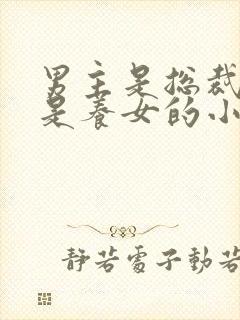 男主是总裁
是养女的小
静若電子動若